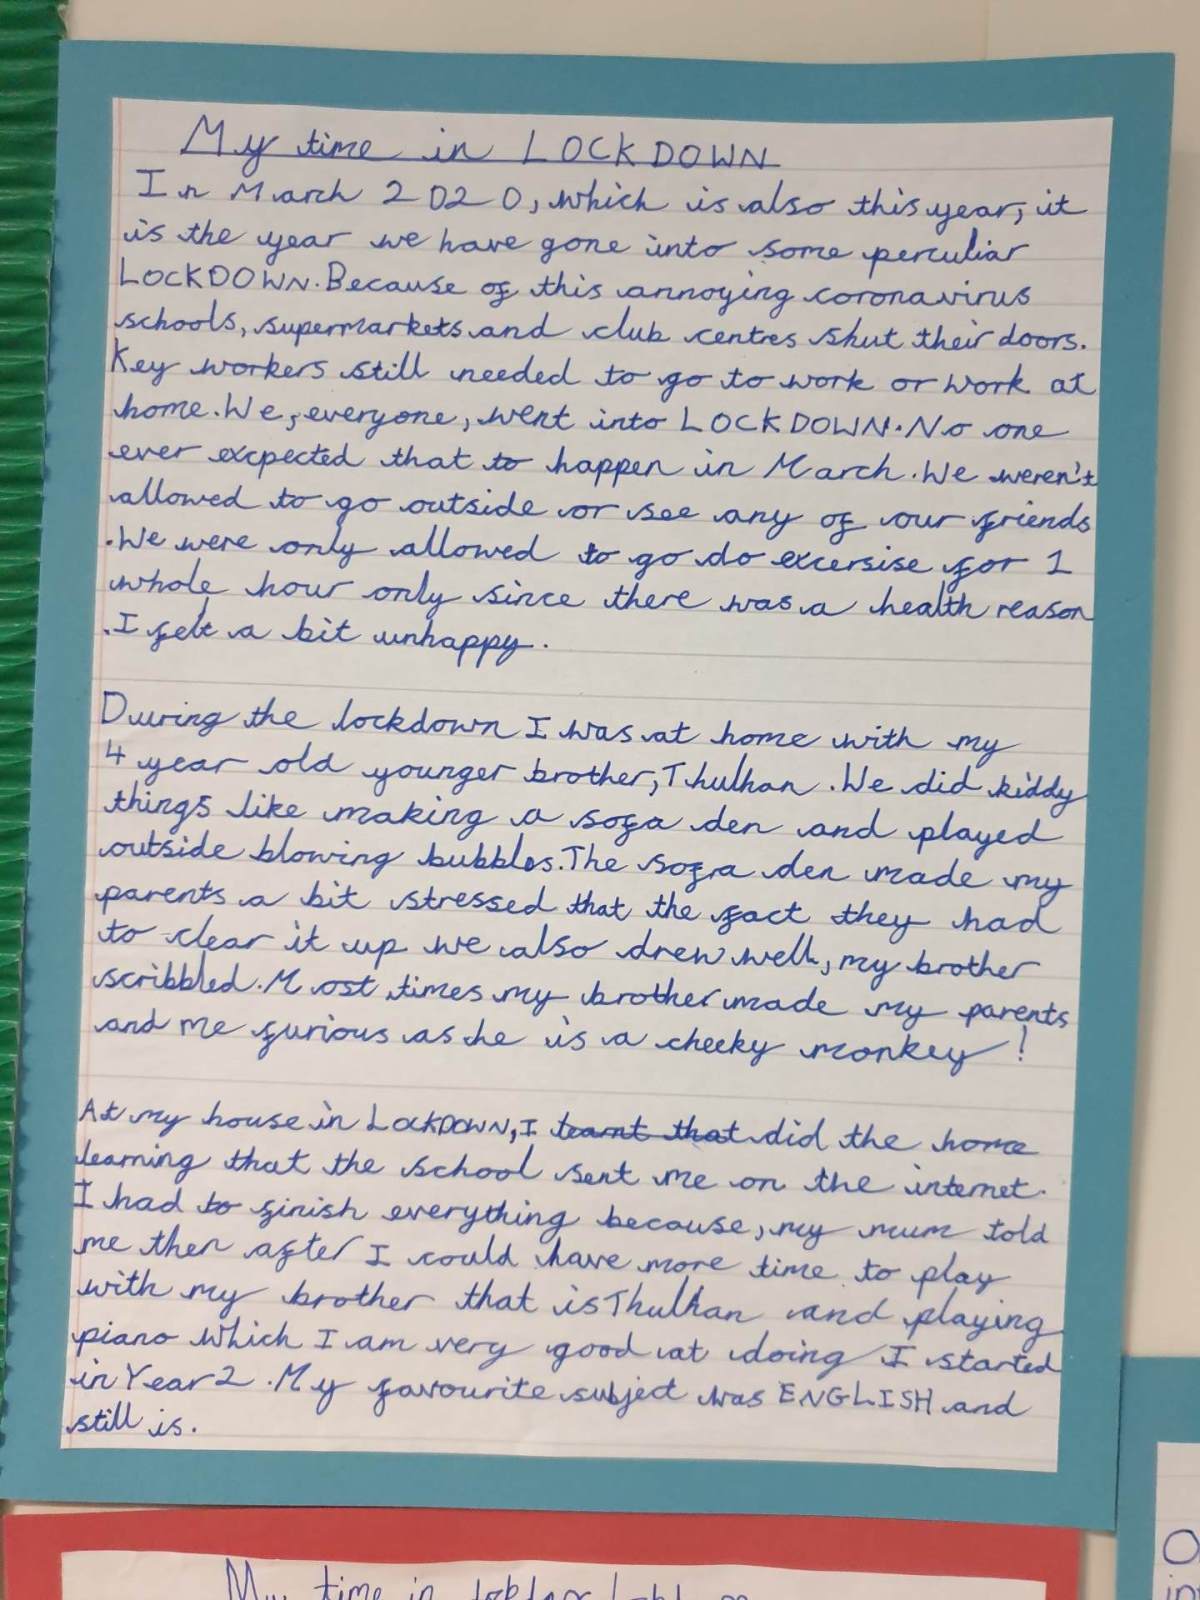 My time in LOCKDOWN
In March 2020, which is also this year, it
is the year we have gone into some perculiar
LOCKDOWN. Because of this annoying coronavirus
schools, supermarkets and club centres shut their doors.
Key workers still needed to go to work or work at
home. We, everyone, went into LOCKDOWN. No one
ever excpected that to happen in March. We weren't
allowed to go outside or see any of our friends
. We were only allowed to go do excersise for 1
whole hour only since there was a health reason
. I felt a bit unhappy.
During the lockdown I was at home with my
4 year old younger brother, Thulhan. We did kiddy
things like making a sofa den and played
outside blowing bubbles. The sofa den made my
parents a bit stressed that the fact they had
to clear it up we also drew well, my brother
scribbled. Most times my brother made my parents
and me furious as he is a cheeky monkey!
At my house in LOCKDOWN, I learnt that did the home
learning that the school sent me on the internet.
I had to finish everything because, my mum told
me then after I could have more time to play
with my brother that is Thulhan and playing
piano which I am very good at doing I started
in Year 2. My favourite subject was ENGLISH and
still is.
My time in